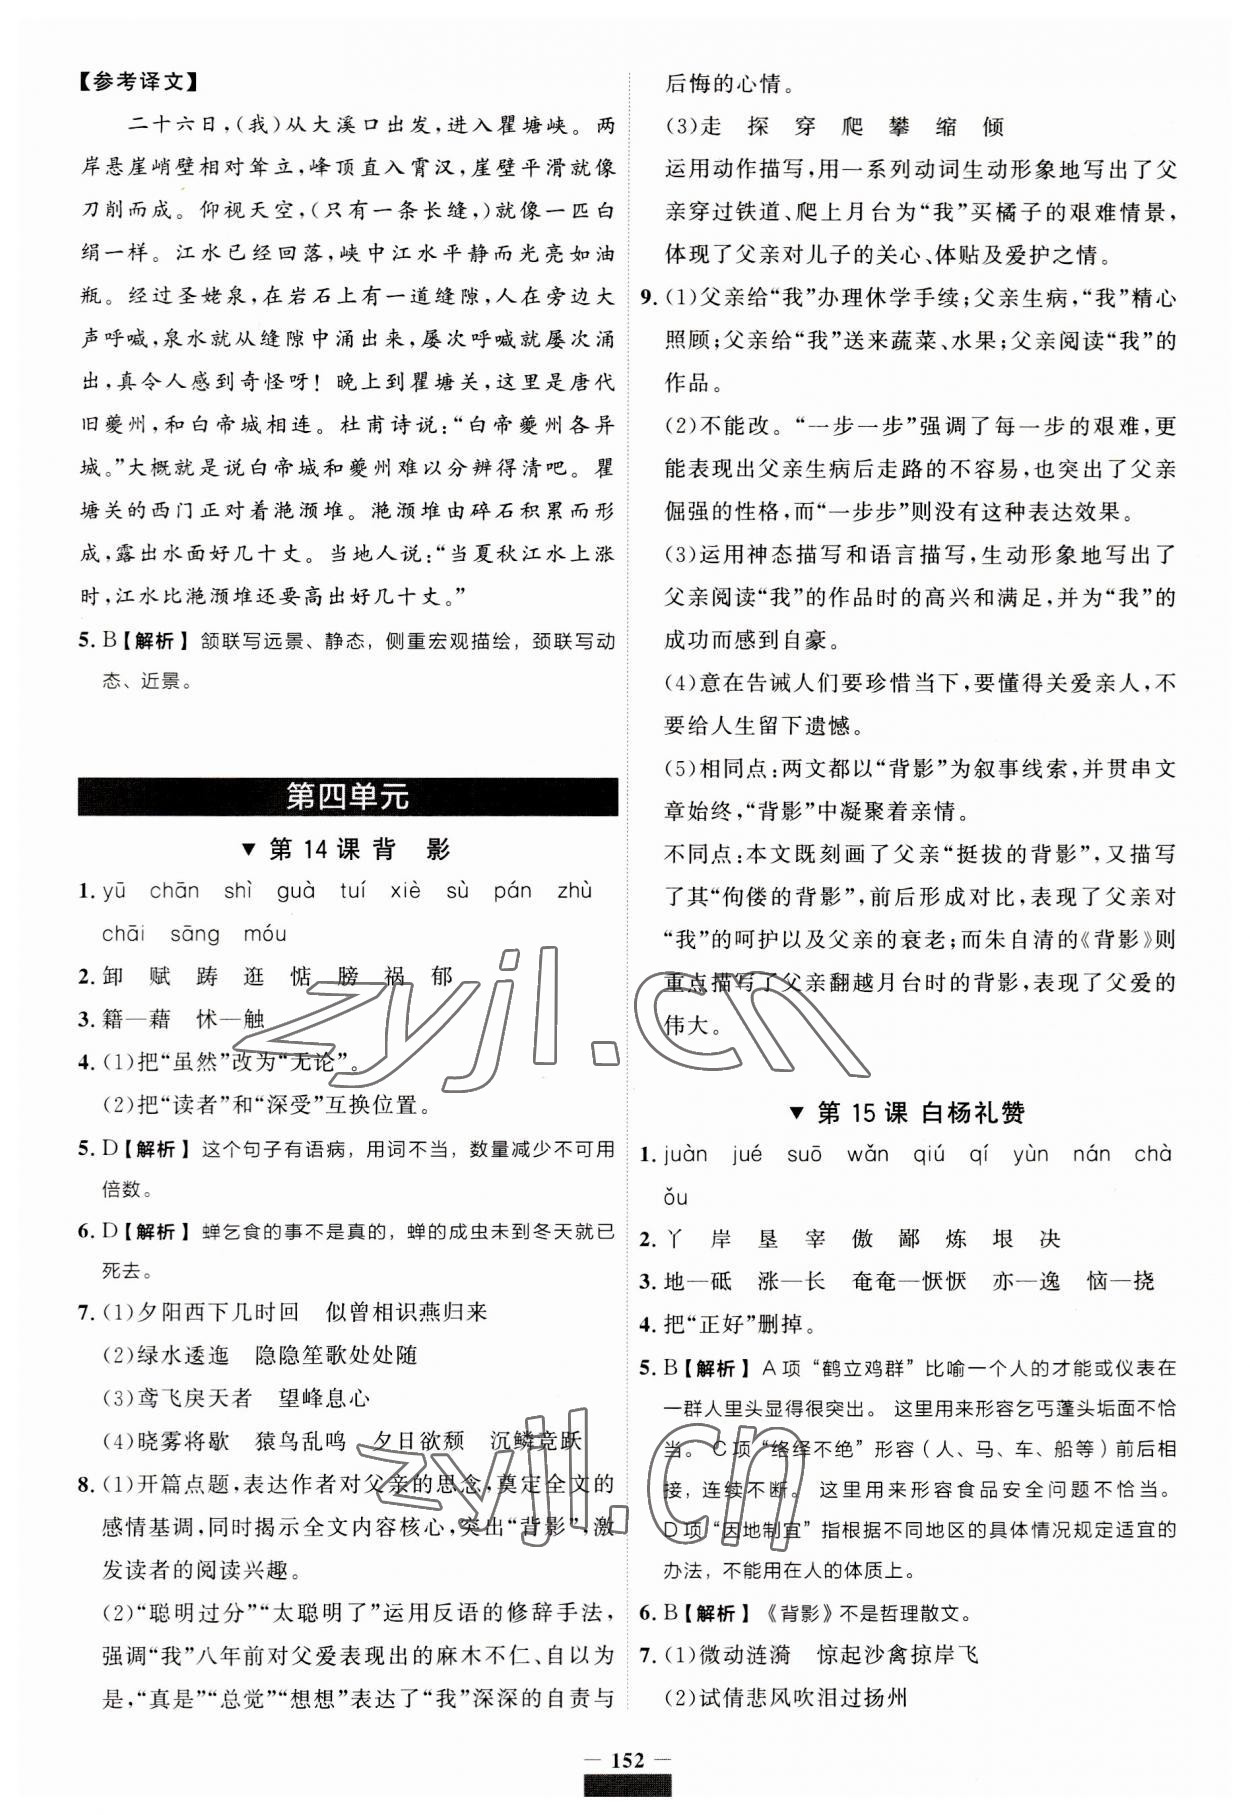 【参考译文】
二十六日，(我)从大溪口出发，进入瞿塘峡。两
岸悬崖峭壁相对耸立，峰顶直入霄汉，崖壁平滑就像
刀削而成。仰视天空，(只有一条长缝，)就像一匹白
绢一样。江水已经回落，峡中江水平静而光亮如油
瓶。经过圣姥泉，在岩石上有一道缝隙，人在旁边大
声呼喊，泉水就从缝隙中涌出来，屡次呼喊就屡次涌
出，真令人感到奇怪呀！晚上到瞿塘关，这里是唐代
旧夔州，和白帝城相连。杜甫诗说：“白帝夔州各异
城。”大概就是说白帝城和夔州难以分辨得清吧。瞿
塘关的西门正对着滟滪堆。滟滪堆由碎石积累而形
成，露出水面好几十丈。当地人说：“当夏秋江水上涨
时，江水比滟滪堆还要高出好几十丈。”
5. B【解析】颔联写远景、静态，侧重宏观描绘，颈联写动
态、近景。
第四单元
▼ 第 14 课 背　影
1. yū　chān　shì　guà　tuí　xiè　sù　pán　zhù
chāi　sāng　móu
2. 卸　赋　踌　逛　惦　膀　祸　郁
3. 籍—藉　怵—触
4. (1)把“虽然”改为“无论”。
(2)把“读者”和“深受”互换位置。
5. D【解析】这个句子有语病，用词不当，数量减少不可用
倍数。
6. D【解析】蝉乞食的事不是真的，蝉的成虫未到冬天就已
死去。
7. (1)夕阳西下几时回　似曾相识燕归来
(2)绿水逶迤　隐隐笙歌处处随
(3)鸢飞戾天者　望峰息心
(4)晓雾将歇　猿鸟乱鸣　夕日欲颓　沉鳞竞跃
8. (1)开篇点题，表达作者对父亲的思念，奠定全文的
感情基调，同时揭示全文内容核心，突出“背影”，激
发读者的阅读兴趣。
(2)“聪明过分”“太聪明了”运用反语的修辞手法，
强调“我”八年前对父爱表现出的麻木不仁、自以为
是，“真是”“总觉”“想想”表达了“我”深深的自责与
后悔的心情。
(3)走　探　穿　爬　攀　缩　倾
运用动作描写，用一系列动词生动形象地写出了父
亲穿过铁道、爬上月台为“我”买橘子的艰难情景，
体现了父亲对儿子的关心、体贴及爱护之情。
9. (1)父亲给“我”办理休学手续；父亲生病，“我”精心
照顾；父亲给“我”送来蔬菜、水果；父亲阅读“我”的
作品。
(2)不能改。“一步一步”强调了每一步的艰难，更
能表现出父亲生病后走路的不容易，也突出了父亲
倔强的性格，而“一步步”则没有这种表达效果。
(3)运用神态描写和语言描写，生动形象地写出了
父亲阅读“我”的作品时的高兴和满足，并为“我”的
成功而感到自豪。
(4)意在告诫人们要珍惜当下，要懂得关爱亲人，不
要给人生留下遗憾。
(5)相同点：两文都以“背影”为叙事线索，并贯串文
章始终，“背影”中凝聚着亲情。
不同点：本文既刻画了父亲“挺拔的背影”，又描写
了其“佝偻的背影”，前后形成对比，表现了父亲对
“我”的呵护以及父亲的衰老；而朱自清的《背影》则
重点描写了父亲翻越月台时的背影，表现了父爱的
伟大。
▼ 第 15 课 白杨礼赞
1. juàn　jué　suō　wǎn　qiú　qí　yùn　nán　chà
ǒu
2. 丫　岸　垦　宰　傲　鄙　炼　垠　决
3. 地—砥　涨—长　奄奄—恹恹　亦—逸　恼—挠
4. 把“正好”删掉。
5. B【解析】A 项“鹤立鸡群”比喻一个人的才能或仪表在
一群人里头显得很突出。这里用来形容乞丐蓬头垢面不恰
当。C 项“络绎不绝”形容（人、马、车、船等）前后相
接，连续不断。这里用来形容食品安全问题不恰当。
D 项“因地制宜”指根据不同地区的具体情况规定适宜的
办法，不能用在人的体质上。
6. B【解析】《背影》不是哲理散文。
7. (1)微动涟漪　惊起沙禽掠岸飞
(2)试倩悲风吹泪过扬州
152
zyjl.cn
zyjl.cn